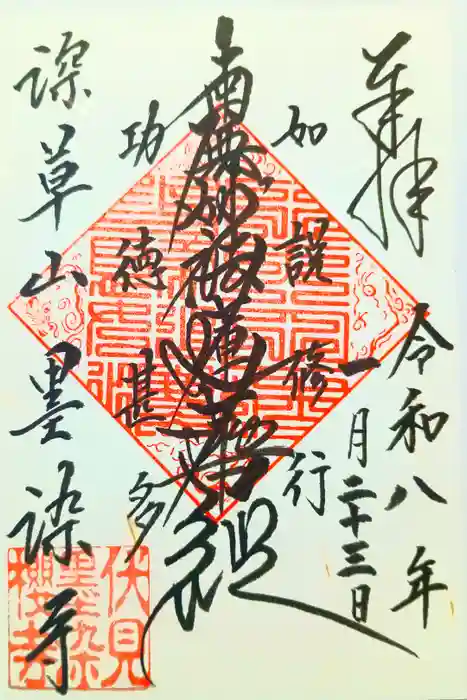 奉拝
令和八年
一月二十三日
如説修行
南無妙法蓮華経
功徳甚多
深草山墨染寺
伏見
墨染
櫻寺